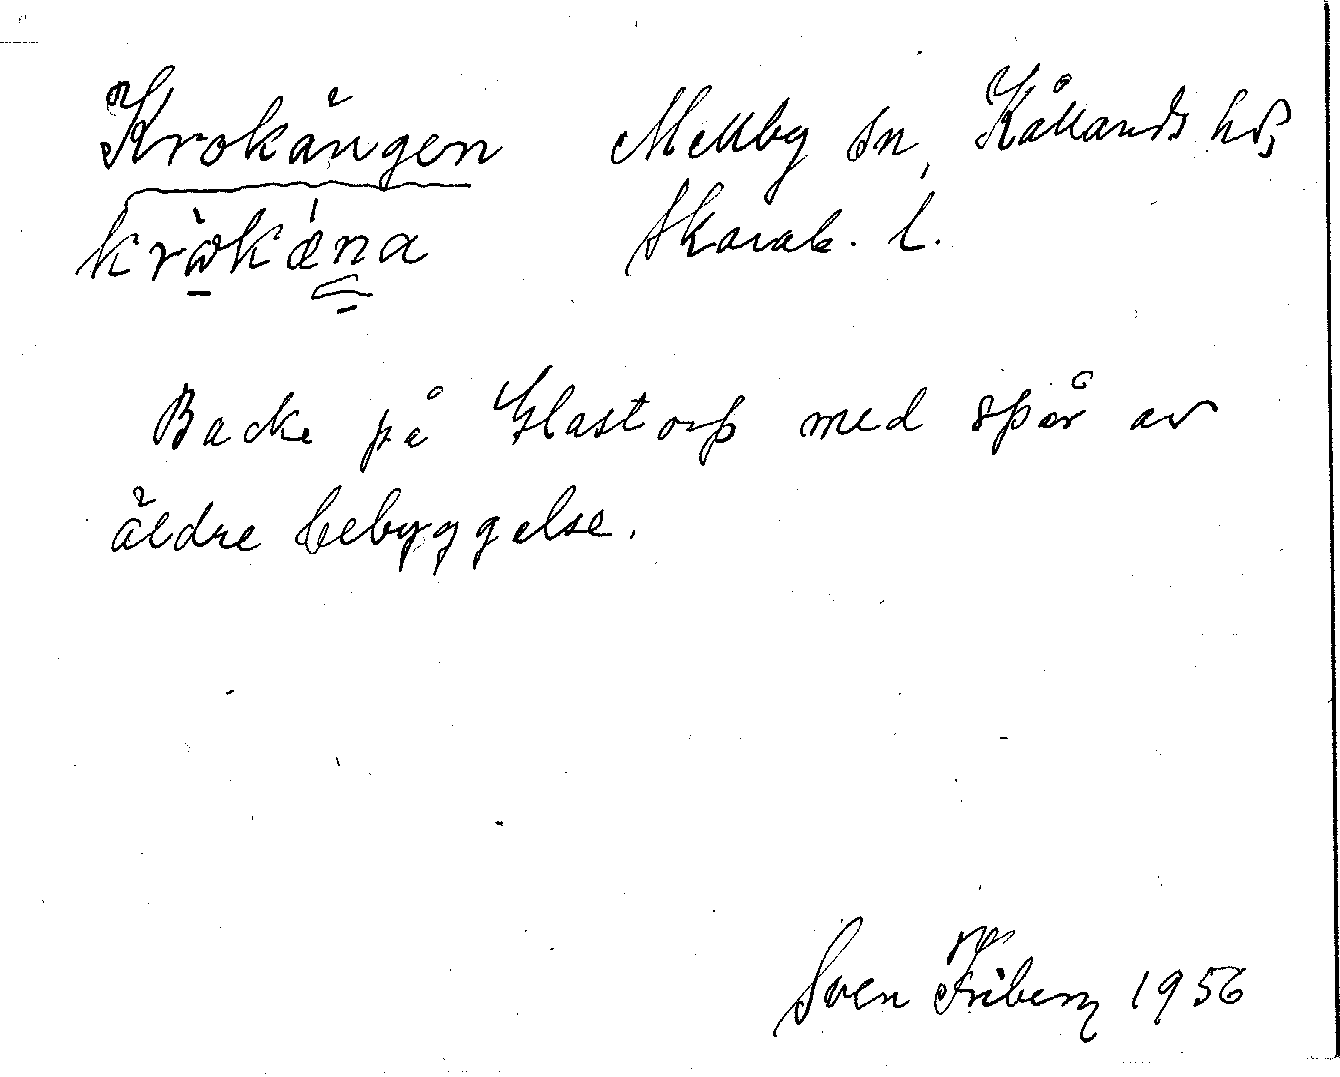 Krokängen Mellby sn, Kållands hd,
kròkǽna Skarab. l.
Backe på Glastorp med spår av
äldre bebyggelse.
Sven Friberg 1956